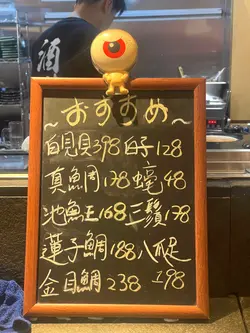 酒
～おすすめ～
白見貝398 白子128
真鯛138 蛯48
池魚王168 三鬚178
蓮子鯛188 八爪
金目鯛238 198